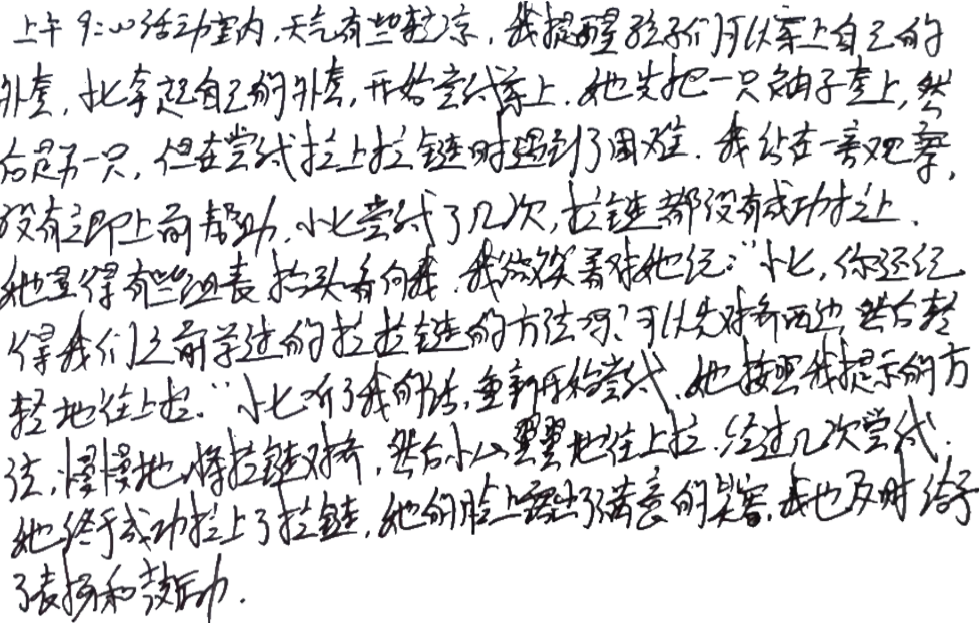 上午9:00活动室内,天气有些转凉,我提醒孩子们可以穿上自己的
外套,小七拿起自己的外套,开始尝试穿上.她先把一只袖子套上,然
后是另一只,但在尝试拉上拉链时遇到了困难.我站在一旁观察,
没有立即上前帮助,小七尝试了几次,拉链都没有成功拉上.
她显得有些沮丧,抬头看向我.我微笑着对她说:"小七,你还记
得我们之前学过的拉拉链的方法吗?可以先对齐两边,然后轻
轻地往上拉."小七听了我的话,重新开始尝试.她按照我提示的方
法,慢慢地将拉链对齐,然后小心翼翼地往上拉.经过几次尝试.
她终于成功拉上了拉链,她的脸上露出了满意的笑容,我也及时给予
了表扬和鼓励.